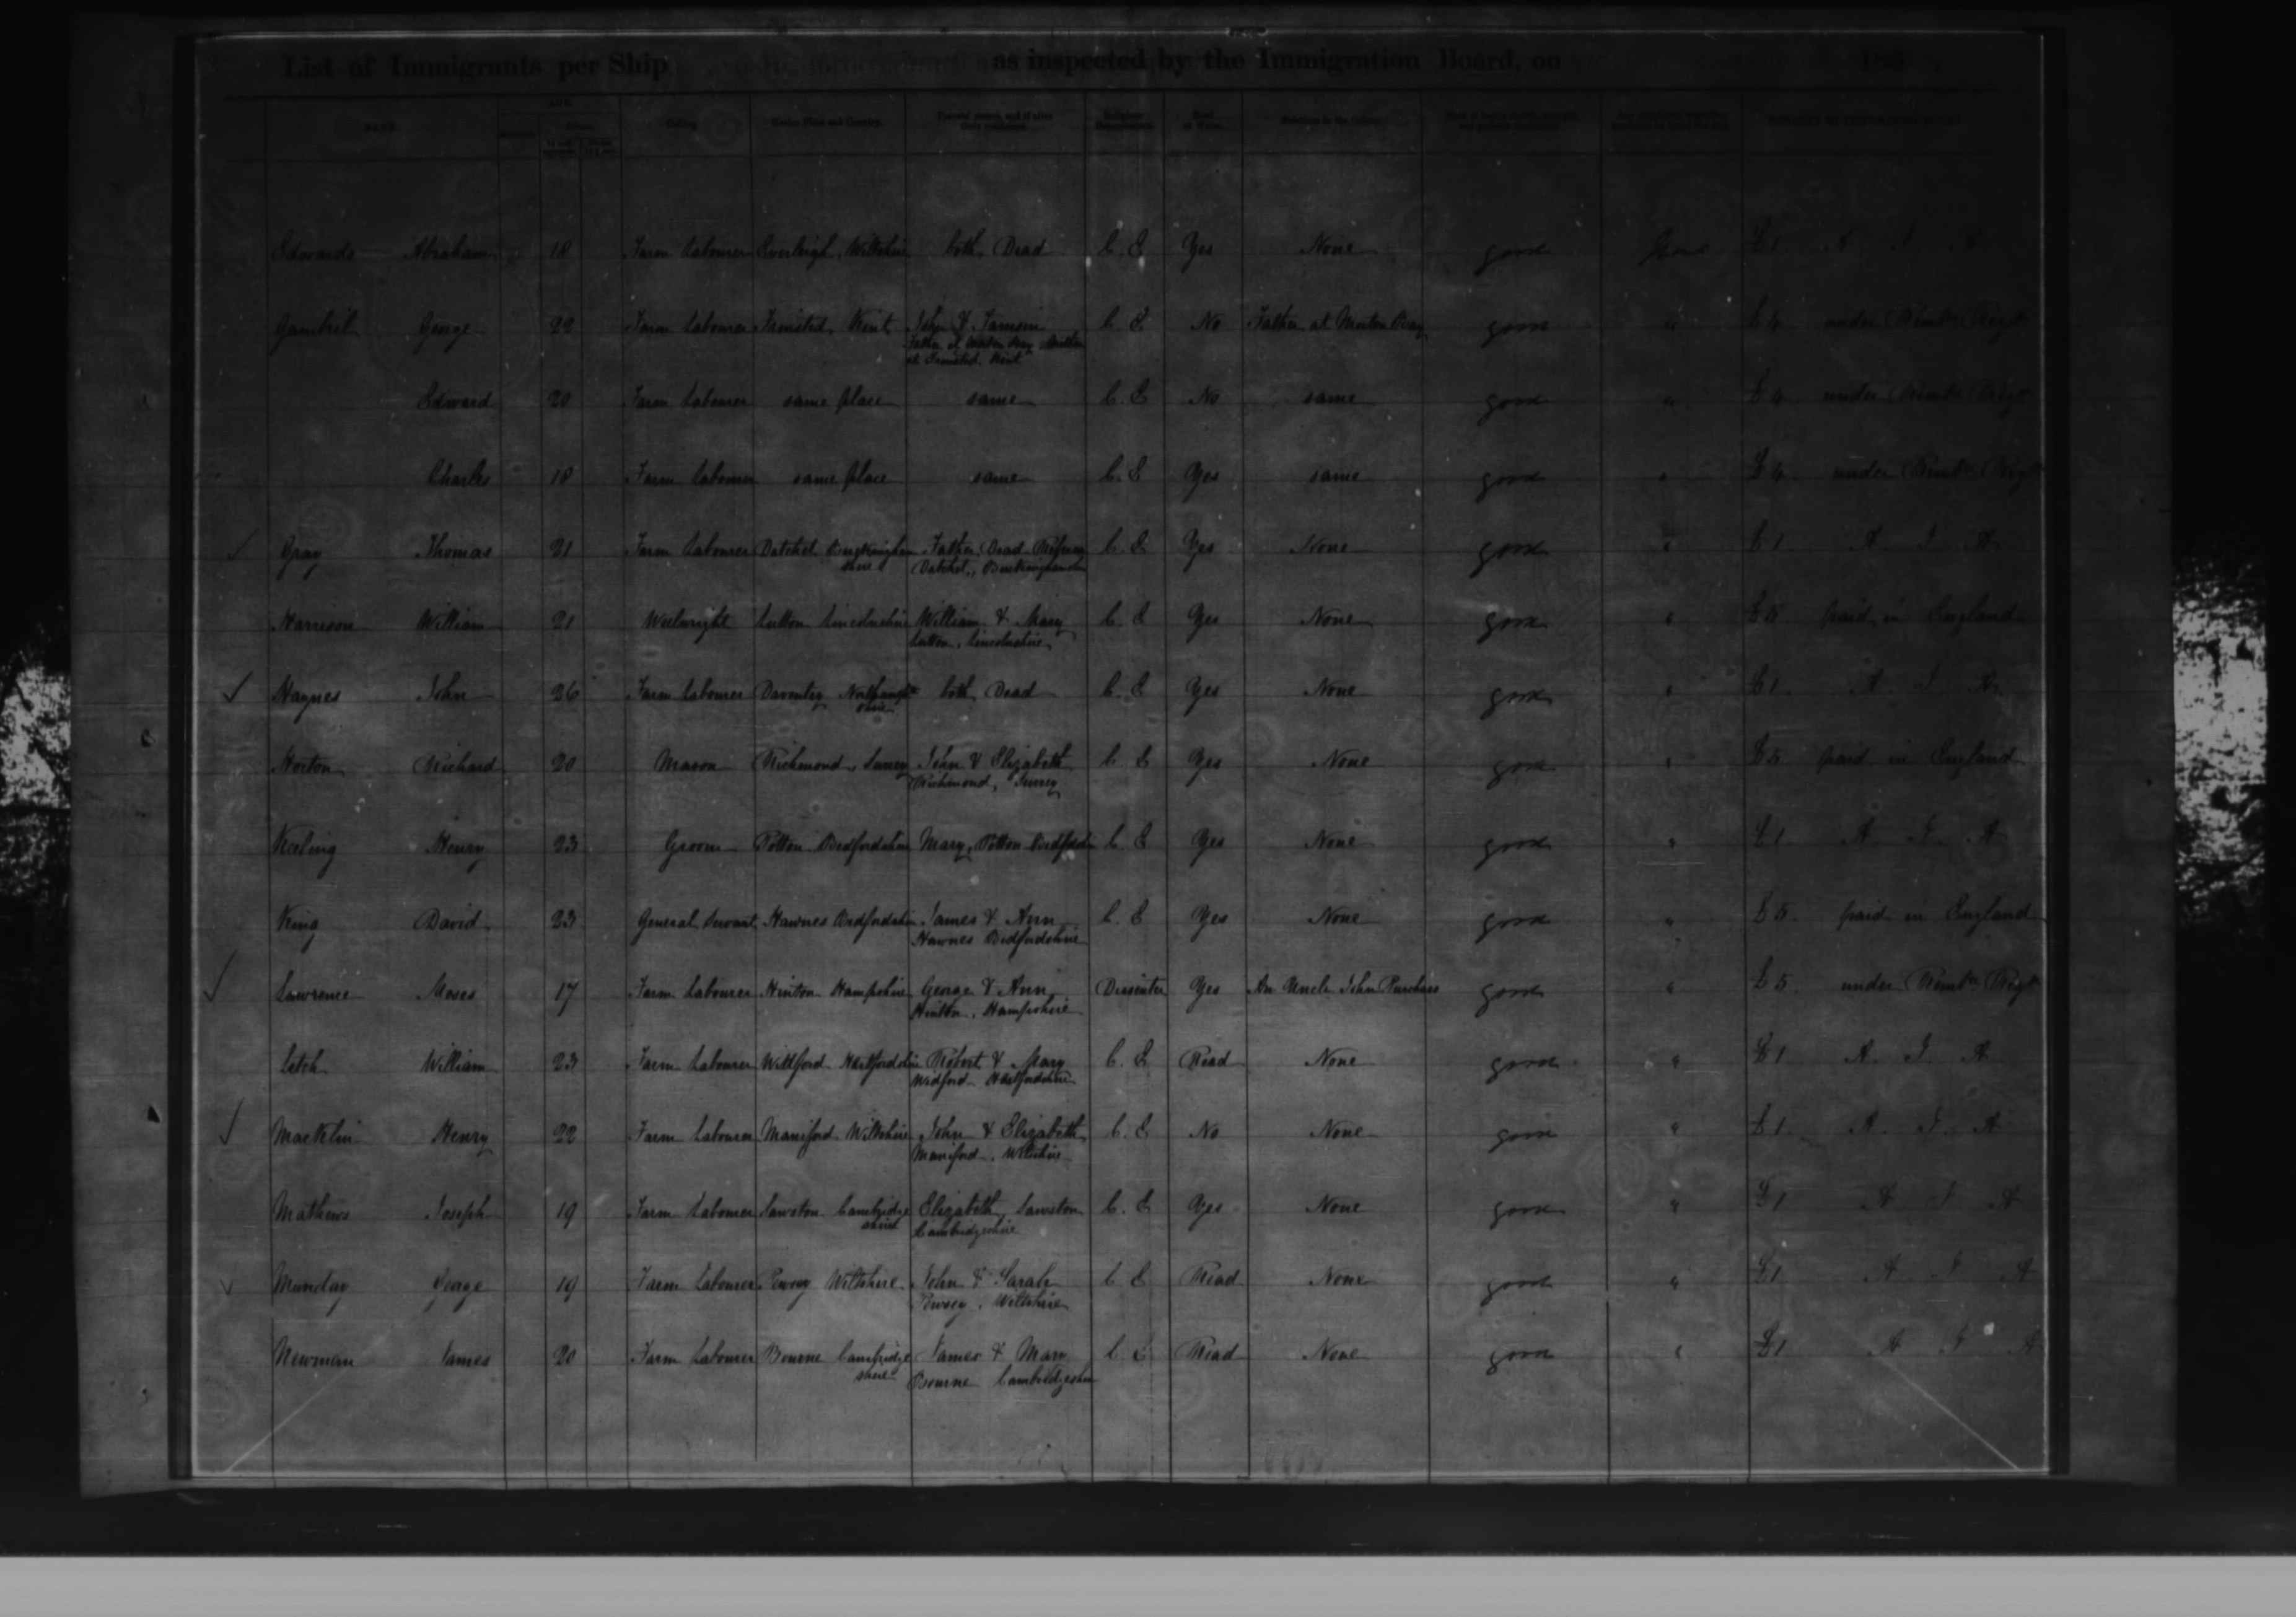 List of Immigrants per Ship as inspected by the Immigration Board, on
NAME. AGE. Calling.
Edwards Abraham 18 Farm Labourer Everleigh, Wiltshire both Dead C. E Yes None good None £1
Gambril George 22 Farm Labourer Kent John & Tamsin C. E No Father at Moreton Bay good " £4 under Remtce Regt
Father at Moreton Bay Mother
at Kent
Edward 20 Farm Labourer same place same C. E No same good " £4 under Remtce Regt
Charles 18 Farm Labourer same place same C. E Yes same good " £4 under Remtce Regt
Gray Thomas 21 Farm Labourer Datchet Buckingham Father Dead C. E Yes None good " £1 A I A
shire Datchet, Buckinghamshire
Harrison William 21 Weelwright Lutton Lincolnshire William & Mary C. E Yes None good " £5 paid in England
Lutton, Lincolnshire
Haynes John 26 Farm Labourer Daventry Northampt both Dead C. E Yes None good " £1 A. I A.
shire
Horton Richard 20 Mason Richmond, Surrey John & Elizabeth C. E Yes None good " £5 paid in England
Richmond, Surrey
Keeling Henry 23 Groom Potton Bedfordshire Mary, Potton Bedfords C. E Yes None good " £1 A I. A
King David 23 General Servant Hawnes Bedfordshire James & Ann C. E Yes None good " £5. paid in England
Hawnes Bedfordshire
Lawrence Moses 17 Farm Labourer Hinton Hampshire George & Ann Dissenter Yes An Uncle John Purchase good " £5. under Remtce Regt
Hinton, Hampshire
Letch William 23 Farm Labourer Widford Hertfordshire Robert & Mary C. E Read None good " £1 A. I A
Widford Hertfordshire
Macklin Henry 22 Farm Labourer Maniford Wiltshire John & Elizabeth C. E No None good " £1. A. I. A
Maniford, Wiltshire
Mathews Joseph 19 Farm Labourer Sawston Cambridge Elizabeth Sawston C. E Yes None good " £1 A I A
shire Cambridgeshire
Munday George 19 Farm Labourer Pewsey Wiltshire John & Sarah C E Read None good " £1 A I A
Pewsey, Wiltshire
Newman James 20 Farm Labourer Bourne Cambridge James & Mary C. E Read None good " £1 A I A
shire Bourne Cambridgeshire